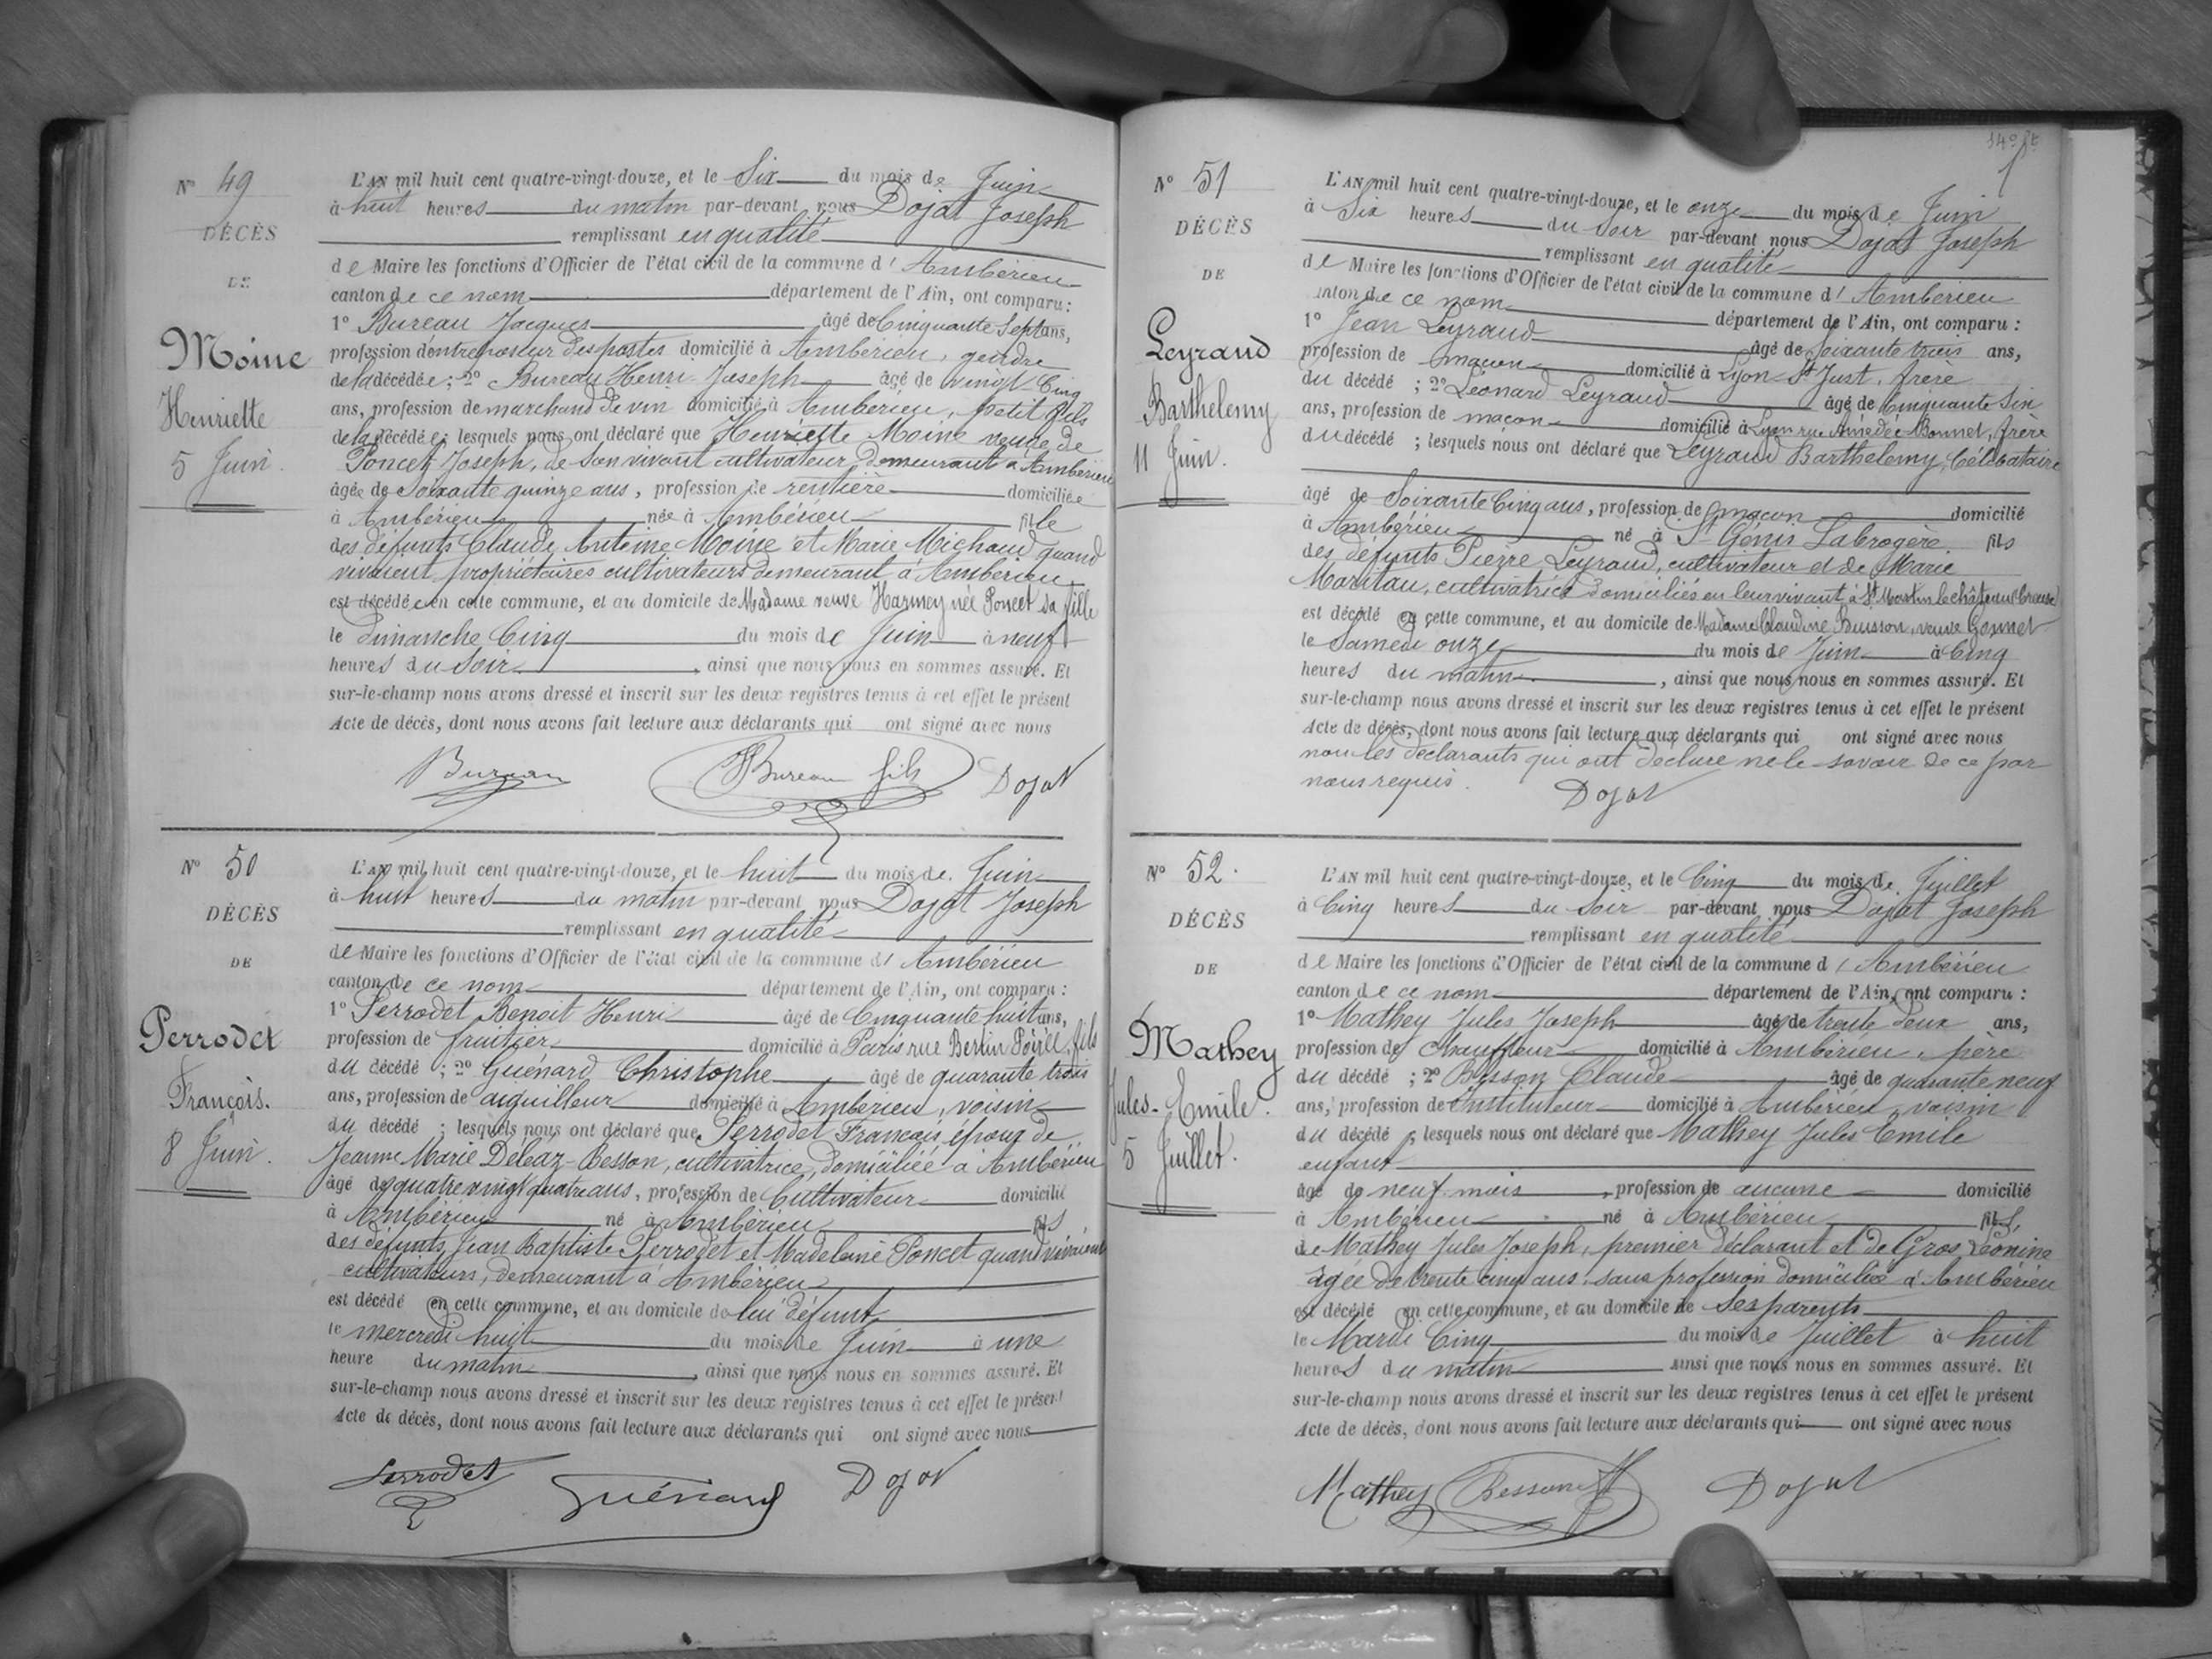 N° 49
DÉCÈS
DE
Moine
Henriette
5 Juin.
L'AN mil huit cent quatre-vingt-douze, et le Six du mois de Juin
à huit heures du matin par-devant nous Dojat Joseph
remplissant en qualité
de Maire les fonctions d'Officier de l'état civil de la commune d'Ambérieu
canton de ce nom département de l'Ain, ont comparu :
1° Bureau Jacques âgé de Cinquante Sept ans,
profession d'entreposeur des postes domicilié à Ambérieu, gendre
de la décédée ; 2° Bureau Henri Joseph âgé de vingt Cinq
ans, profession de marchand de vin domicilié à Ambérieu, petit fils
de la décédée ; lesquels nous ont déclaré que Henriette Moine veuve de
Poncet Joseph, de son vivant cultivateur demeurant à Ambérieu
âgée de Soixante quinze ans, profession de rentière domiciliée
à Ambérieu née à Ambérieu fille
des défunts Claude Antoine Moine et Marie Michaud quand
vivaient propriétaires cultivateurs demeurant à Ambérieu
est décédée en cette commune, et au domicile de Madame veuve Harmey née Poncet sa fille
le dimanche Cinq du mois de Juin à neuf
heures du Soir, ainsi que nous nous en sommes assuré. Et
sur-le-champ nous avons dressé et inscrit sur les deux registres tenus à cet effet le présent
Acte de décès, dont nous avons fait lecture aux déclarants qui ont signé avec nous
Bureau Bureau fils Dojat
N° 50
DÉCÈS
DE
Perrodet
François.
8 Juin.
L'AN mil huit cent quatre-vingt-douze, et le huit du mois de Juin
à huit heures du matin par-devant nous Dojat Joseph
remplissant en qualité
de Maire les fonctions d'Officier de l'état civil de la commune d'Ambérieu
canton de ce nom département de l'Ain, ont comparu :
1° Perrodet Benoit Henri âgé de Cinquante huit ans,
profession de fruitier domicilié à Paris rue Bertin Poirée, fils
du décédé ; 2° Guénard Christophe âgé de quarante trois
ans, profession de aiguilleur domicilié à Ambérieu, voisin
du décédé ; lesquels nous ont déclaré que Perrodet François époux de
Jeanne Marie Déléaz-Besson, cultivatrice, domiciliée à Ambérieu
âgé de quatre vingt quatre ans, profession de Cultivateur domicilié
à Ambérieu né à Ambérieu fils
des défunts Jean Baptiste Perrodet et Madeleine Poncet quand vivaient
cultivateurs, demeurant à Ambérieu
est décédé en cette commune, et au domicile de lui défunt
le mercredi huit du mois de Juin à une
heure du matin, ainsi que nous nous en sommes assuré. Et
sur-le-champ nous avons dressé et inscrit sur les deux registres tenus à cet effet le présent
Acte de décès, dont nous avons fait lecture aux déclarants qui ont signé avec nous
Perrodet Guénard Dojat
N° 51
DÉCÈS
DE
Leyraud
Barthelemy
11 Juin.
L'AN mil huit cent quatre-vingt-douze, et le onze du mois de Juin
à Six heures du Soir par-devant nous Dojat Joseph
remplissant en qualité
de Maire les fonctions d'Officier de l'état civil de la commune d'Ambérieu
canton de ce nom département de l'Ain, ont comparu :
1° Jean Leyraud âgé de soixante trois ans,
profession de maçon domicilié à Lyon St Just, frère
du décédé ; 2° Leonard Leyraud âgé de Cinquante Six
ans, profession de maçon domicilié à Lyon rue Amédée Bonnet, frère
du décédé ; lesquels nous ont déclaré que Leyraud Barthelemy, Célibataire
âgé de Soixante Cinq ans, profession de maçon domicilié
à Ambérieu né à St Génis Labrogère fils
des défunts Pierre Leyraud, cultivateur et de Marie
Maritau, cultivatrice domiciliés en leur vivant à St Martin le château (Creuse)
est décédé en cette commune, et au domicile de Madame Claudine Buisson, veuve Gonnet
le Samedi onze du mois de Juin à Cinq
heures du matin, ainsi que nous nous en sommes assuré. Et
sur-le-champ nous avons dressé et inscrit sur les deux registres tenus à cet effet le présent
Acte de décès, dont nous avons fait lecture aux déclarants qui ont signé avec nous
non les déclarants qui ont déclaré ne le savoir de ce par
nous requis. Dojat
N° 52.
DÉCÈS
DE
Mathey
Jules-Emile.
5 Juillet.
L'AN mil huit cent quatre-vingt-douze, et le Cinq du mois de Juillet
à Cinq heures du Soir par-devant nous Dojat Joseph
remplissant en qualité
de Maire les fonctions d'Officier de l'état civil de la commune d'Ambérieu
canton de ce nom département de l'Ain, ont comparu :
1° Mathey Jules Joseph âgé de trente deux ans,
profession de Chauffeur domicilié à Ambérieu, père
du décédé ; 2° Besson Claude âgé de quarante neuf
ans, profession de Instituteur domicilié à Ambérieu voisin
du décédé ; lesquels nous ont déclaré que Mathey Jules Emile
enfant
âgé de neuf mois, profession de aucune domicilié
à Ambérieu né à Ambérieu fils
de Mathey Jules Joseph, premier déclarant et de Gros Léonine
âgée de trente cinq ans, sans profession domiciliée à Ambérieu
est décédé en cette commune, et au domicile de Ses parents
le Mardi Cinq du mois de Juillet à huit
heures du matin ainsi que nous nous en sommes assuré. Et
sur-le-champ nous avons dressé et inscrit sur les deux registres tenus à cet effet le présent
Acte de décès, dont nous avons fait lecture aux déclarants qui ont signé avec nous
Mathey Besson Dojat